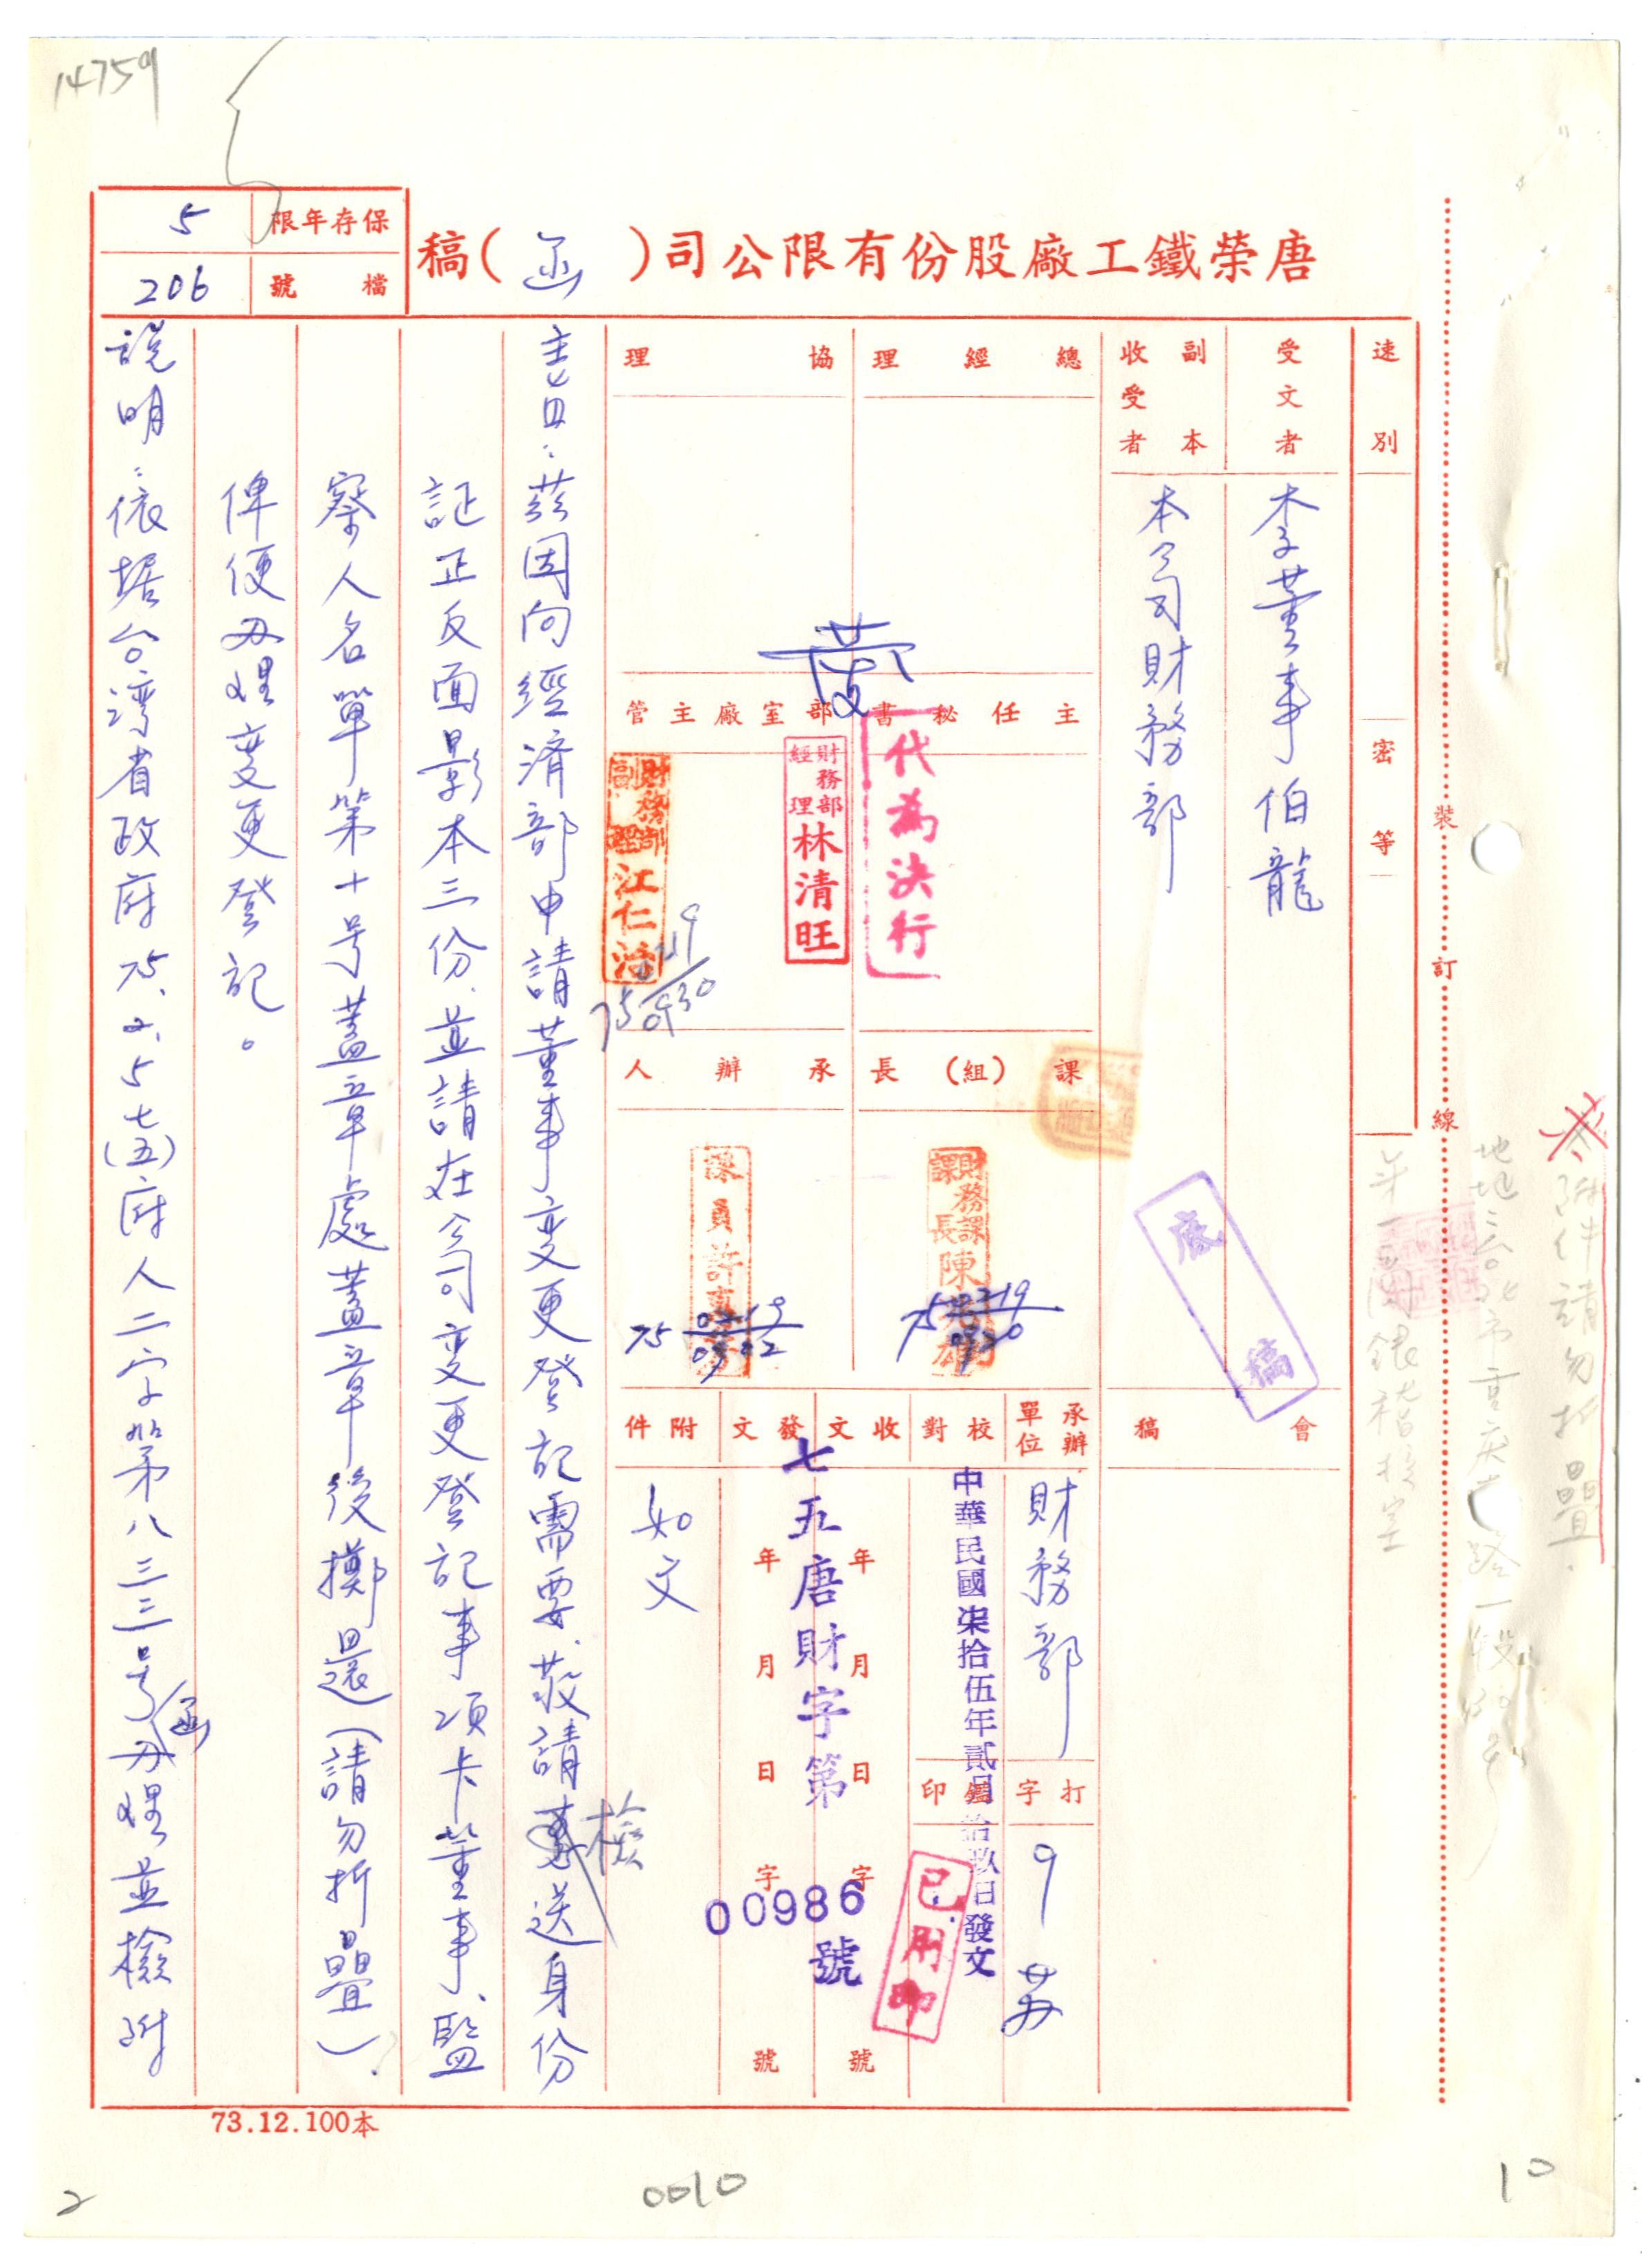 14759
保存年限
5
檔號
206
唐榮鐵工廠股份有限公司(函)稿
速別
密等
受文者
李董事伯龍
副本收受者
本公司財務部
總經理
協理
主任秘書
部室廠主管
代為決行
財務部經理 林清旺
財務部副理 江仁浩
75 0219 0930
課(組)長
承辦人
財務課課長 陳
75 0219 0920
課員 許
75 0219 0902
底稿
會稿
承辦單位
財務部
校對
收文
發文
附件
如文
年月日字號
年月日字號
打字
監印
中華民國柒拾伍年貳月拾玖日發文
七五唐財字第00986號
已用印
主旨:茲因向經濟部申請董事變更登記需要,敬請檢送身份
証正反面影本三份,並請在公司變更登記事項卡董事、監
察人名單第十号蓋章處蓋章後擲還(請勿折疊),
俾便办理變更登記。
說明:依据台湾省政府75.2.5七(五)府人二字第八三三号函办理並檢附
裝
訂
線
附件請勿折疊.
地址:台北市重庆
路一段
第一商銀稽核室
73.12.100本
2
0010
10